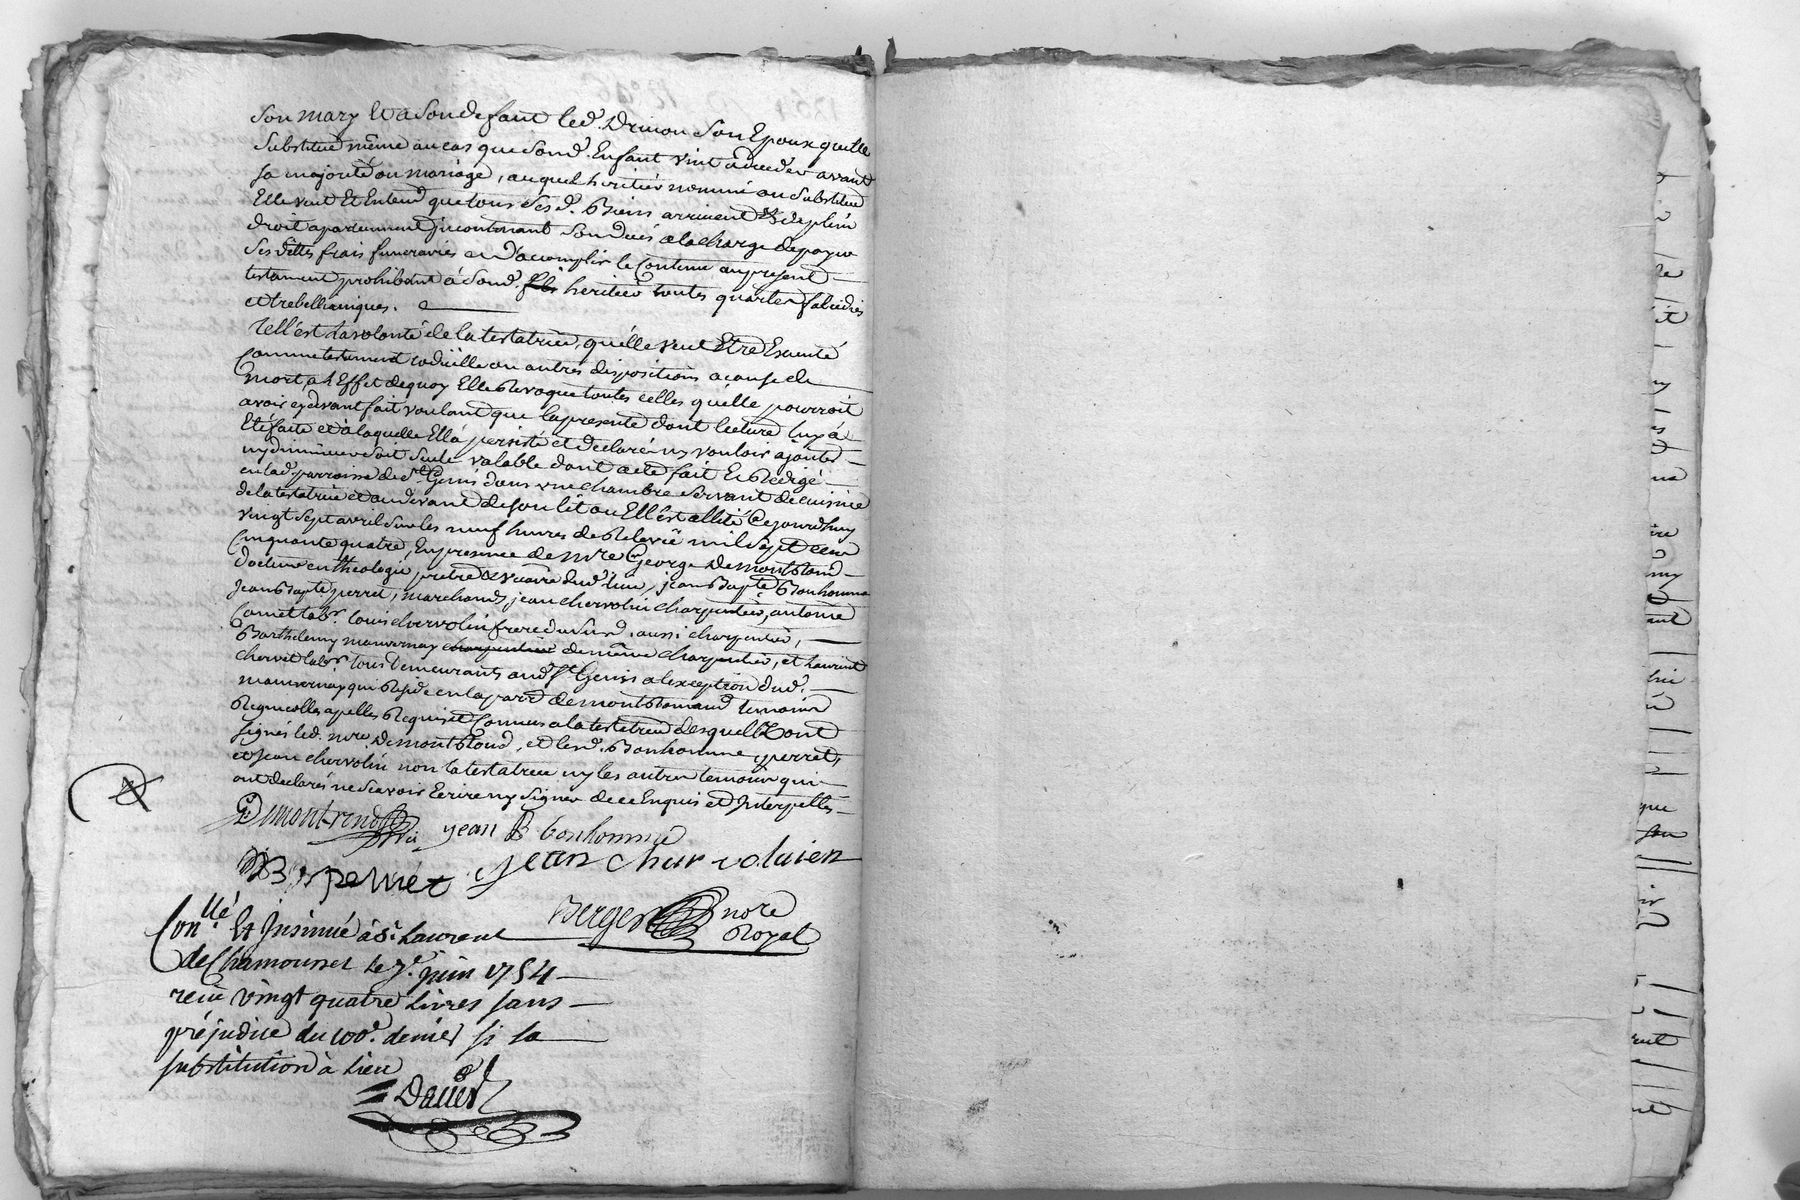 son mary et a son defaut led. Drivon son Epoux quelle
substitue même au cas que sond. Enfant vint a deceder avant
sa majorité ou mariage, auquel heritier nommé ou substitué
Elle veut Et Entend que tous sesd. Biens arrivent & de plein
droit apartiennent incontinant son decés a la charge de payer
ses dettes frais funeraires et d'acomplir le Contenu au present
testament prohibant à sond. heritier toutes quartes falcidies
et trebellianiques.
Tell'est la volonté de la testatrice, qu'elle veut Etre Executé
comme testament codicille ou autres dispositions a cause de
mort, a L'Effet de quoy Elle Revoque toutes celles qu'elle pourroit
avoir cy devant fait voulant que la presente dont lecture luy a
Eté faite et a laquelle Ell'a persisté et declaré ny vouloir ajouter
ny diminüer soit seule valable dont acte fait Et Redigé
en lad. parroisse de St Genis dans une chambre servant de cuisine
de la testatrice et au devant de son lit ou Ell'est allitée Cejourdhuy
vingt sept avril sur les neuf heures de Relevée mil sept cent
Cinquante quatre, En presence de Mre George Demontrond
docteur en theologie, pretre & vicaire dud. lieu, jean Bapte Bonhomme
jean Bapte perret, marchands, jean chervolin charpentier, antoine
Comet labr. louis chervolin frere du susd. aussi charpentier,
Barthelemy mauvernay charpentier de même charpentier, et Laurent
chervet labr. tous demeurants aud. St Genis a l'exception dud.
mauvernay qui Reside en la parr. de montromand temoins
Requis et apellés Requis et Connus a la testatrice desquels ont
signés led. Mre Demontrond, et lesd. Bonhomme, perret,
et jean chervolin non la testatrice ny les autres temoins qui
ont declarés ne scavoir Ecrire ny signer de ce Enquis et Interpellés
G. Demontrond vic. jean B bonhomme
JB perret jean cheurvolaien
Berger nore
Royal
Conllé Et Insinué à St Laurent
de Chamousset le 7e. juin 1754
reçu vingt quatre livres sans
préjudice du 100e. denier si la
substitution à lieu
Daver